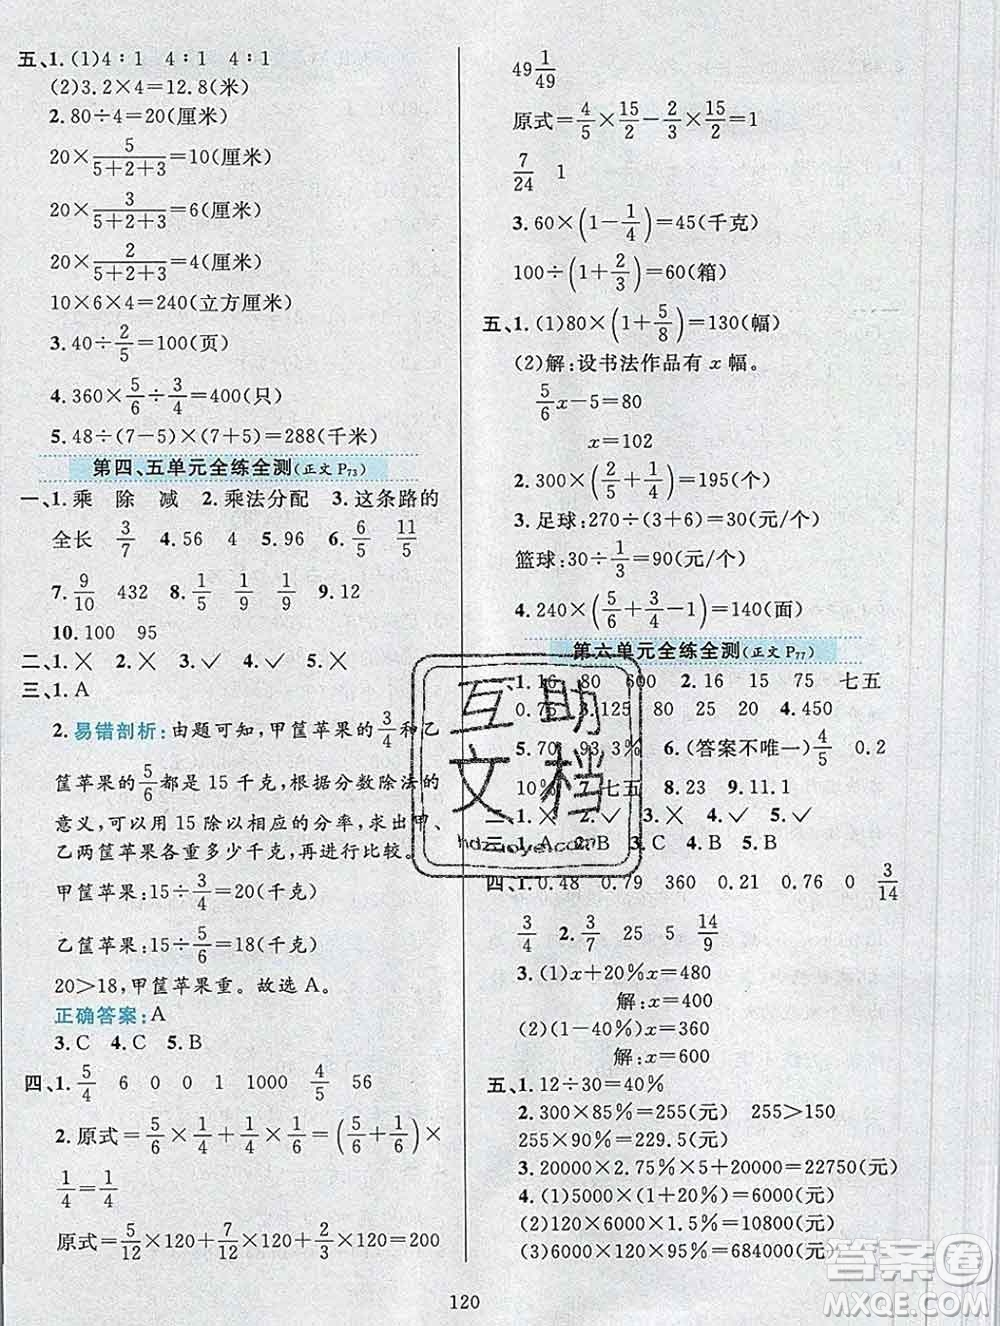 五、1. (1)4∶1　4∶1　4∶1
(2)3.2×4=12.8(米)
2. 80÷4=20(厘米)
20×5/(5+2+3)=10(厘米)
20×3/(5+2+3)=6(厘米)
20×2/(5+2+3)=4(厘米)
10×6×4=240(立方厘米)
3. 40÷2/5=100(页)
4. 360×5/6÷3/4=400(只)
5. 48÷(7-5)×(7+5)=288(千米)
第四、五单元全练全测(正文 P73)
一、1. 乘　除　减　2. 乘法分配　3. 这条路的
全长　3/7　4. 56　4　5. 96　6. 6/5　11/5
7. 9/10　432　8. 1/5　1/9　1/9　9. 12
10. 100　95
二、1. ×　2. ×　3. ✓　4. ✓　5. ×
三、1. A
2. 易错剖析:由题可知，甲筐苹果的3/4和乙
筐苹果的5/6都是 15 千克，根据分数除法的
意义，可以用 15 除以相应的分率，求出甲、
乙两筐苹果各重多少千克，再进行比较。
甲筐苹果:15÷3/4=20(千克)
乙筐苹果:15÷5/6=18(千克)
20>18，甲筐苹果重。故选 A。
正确答案:A
3. C　4. C　5. B
四、1. 5/4　6　0　0　1　1000　4/5　56
2. 原式=5/6×1/4+1/6×1/4=(5/6+1/6)×
1/4=1/4
原式=5/12×120+7/12×120+8/12×120=200
49 1/49
原式=4/5×15/2-2/3×15/2=1
7/24　1
3. 60×(1-1/4)=45(千克)
100÷(1+2/3)=60(箱)
五、1. (1)80×(1+5/8)=130(幅)
(2)解:设书法作品有 x 幅。
5/6x-5=80
x=102
2. 300×(1/5+1/4+1/5)=195(元)
3. 足球:270÷(3+6)=30(元/个)
篮球:30÷1/3=90(元/个)
4. 240×(5/6+3/4-1)=140(面)
第六单元全练全测(正文 P77)
一、1. 16　80　600　2. 16　15　75　七五
0.75　3. 125　80　25　20　4. 450
5. 70　93.3%　6. (答案不唯一)4/5　0.2
10%　7. 七五
二、1. ×　2. ✓　3. ×　4. ✓　5. ✓
三、1. A　2. B　3. C　4. B　5. B
四、1. 0.48　0.79　360　0.21　0.76　0　3/14
3/4　2. 3/7　25　5　14/9
3. (1)x+20%x=480
解:x=400
(2)(1-40%)x=360
解:x=600
五、1. 12÷30=40%
2. 300×85%=255(元)　255>150
255×90%=229.5(元)
3. 20000×2.75%×5+20000=22750(元)
4. (1)5000×(1+20%)=6000(元)
(2)120×6000×1.5%=10800(元)
(3)6000×120×95%=684000(元)
互助
文档
hdzuoye.com
答案圈
MXQE.COM
120